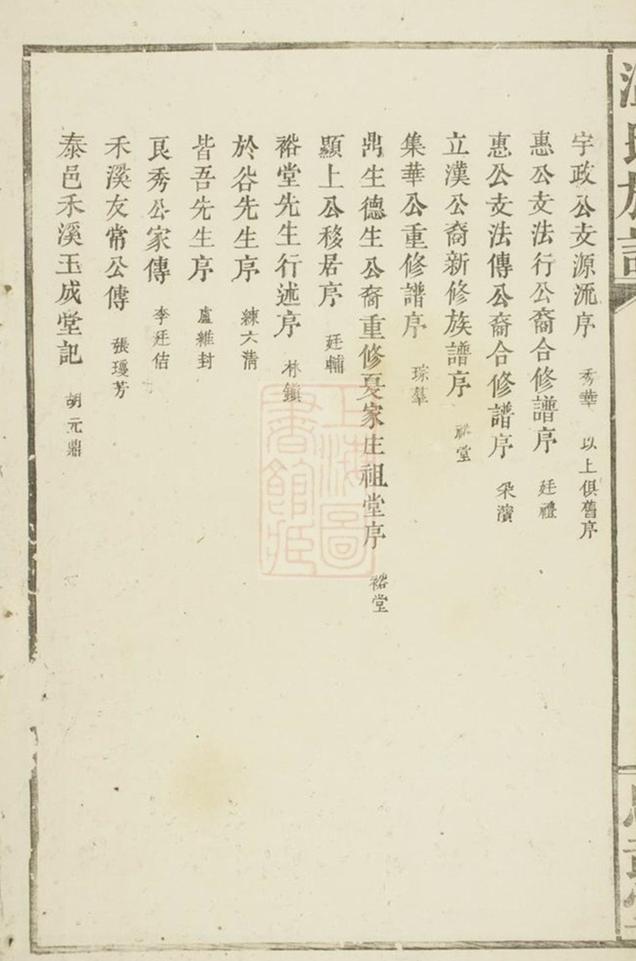 宇政公支源流序 秀華 以上俱舊序
惠公支法行公裔合修譜序 廷禮
惠公支法傳公裔合修譜序 采濱
立漢公裔新修族譜序 裕堂
集華公重修譜序 琮羣
鼎生德生公裔重修夏家庄祖堂序 裕堂
顯上公移居序 廷輔
裕堂先生行述序 林鎮
於谷先生序 練六清
皆吾先生序 盧維封
良秀公家傳 李廷佶
禾溪友常公傳 張瓊芳
泰邑禾溪玉成堂記 胡元鼎
上海圖書館藏